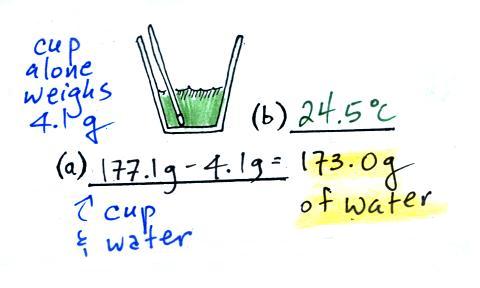 cup
alone
weighs
4.1 g
(b) 24.5°C
(a) 177.1g - 4.1g = 173.0g
of water
↑ cup
& water